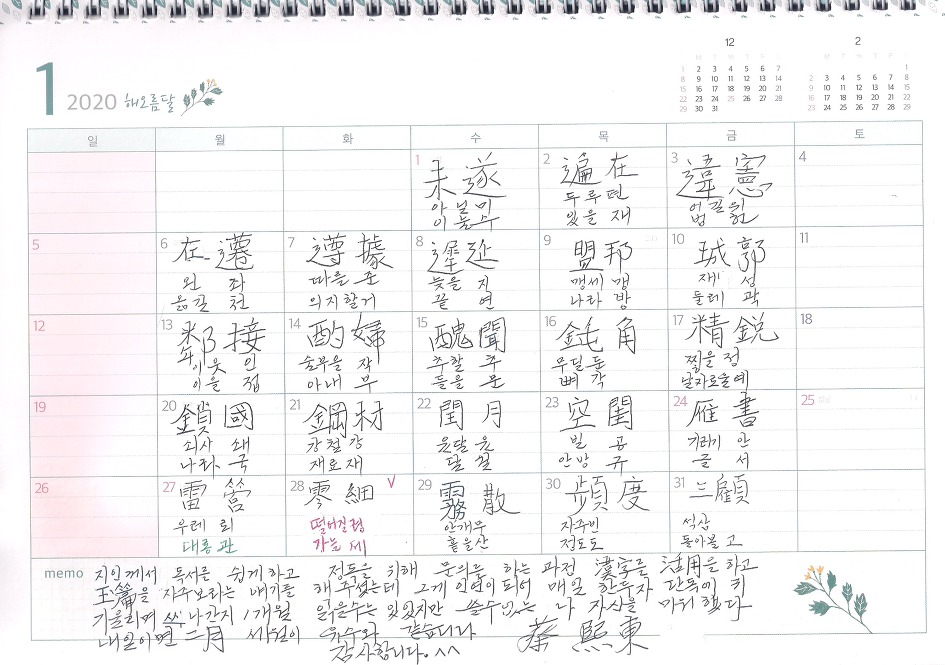 1 2020 해오름달
12
M T W T F S
1 2 3 4 5 6 7
8 9 10 11 12 13 14
15 16 17 18 19 20 21
22 23 24 25 26 27 28
29 30 31
2
M T W T F S
1
2 3 4 5 6 7 8
9 10 11 12 13 14 15
16 17 18 19 20 21 22
23 24 25 26 27 28 29
일 월 화 수 목 금 토
1 未遂
아닐 미
이룰 수
2 遍在
두루 편
있을 재
3 違憲
어길 위
법 헌
4
5
6 左遷
왼 좌
옮길 천
7 遵據
따를 준
의지할 거
8 遲延
늦을 지
끌 연
9 盟邦
맹세 맹
나라 방
10 城郭
재 성
둘레 곽
11
12
13 隣接
이웃 인
이을 접
14 酌婦
술부을 작
아내 부
15 醜聞
추할 추
들을 문
16 鈍角
무딜 둔
뿔 각
17 精銳
찧을 정
날카로울 예
18
19
20 鎖國
쇠사 쇄
나라 국
21 鋼材
강철 강
재료 재
22 閏月
윤달 윤
달 월
23 空閨
빌 공
안방 규
24 雁書
기러기 안
글 서
25
26
27 雷管
우레 뢰
대롱 관
28 零細 V
떨어질 령
가늘 세
29 霧散
안개 무
흩을 산
30 頻度
자주 빈
정도 도
31 三顧
석 삼
돌아볼 고
memo 지인께서 독서를 쉽게 하고 정독을 위해 문의를 하는 과정 漢字를 活用을 하고
玉篇을 자주보라는 얘기를 해주셨는데 그게 인연이 되어 매일 한두자 단독에 귀
기울리며 쓰 나간지 1개월 읽을수는 있었지만 쓸수 없는 나 자신을 마터 했다
내일이면 二月 세월이 유수와 같습니다
감사합니다.^^ 蔡熙東